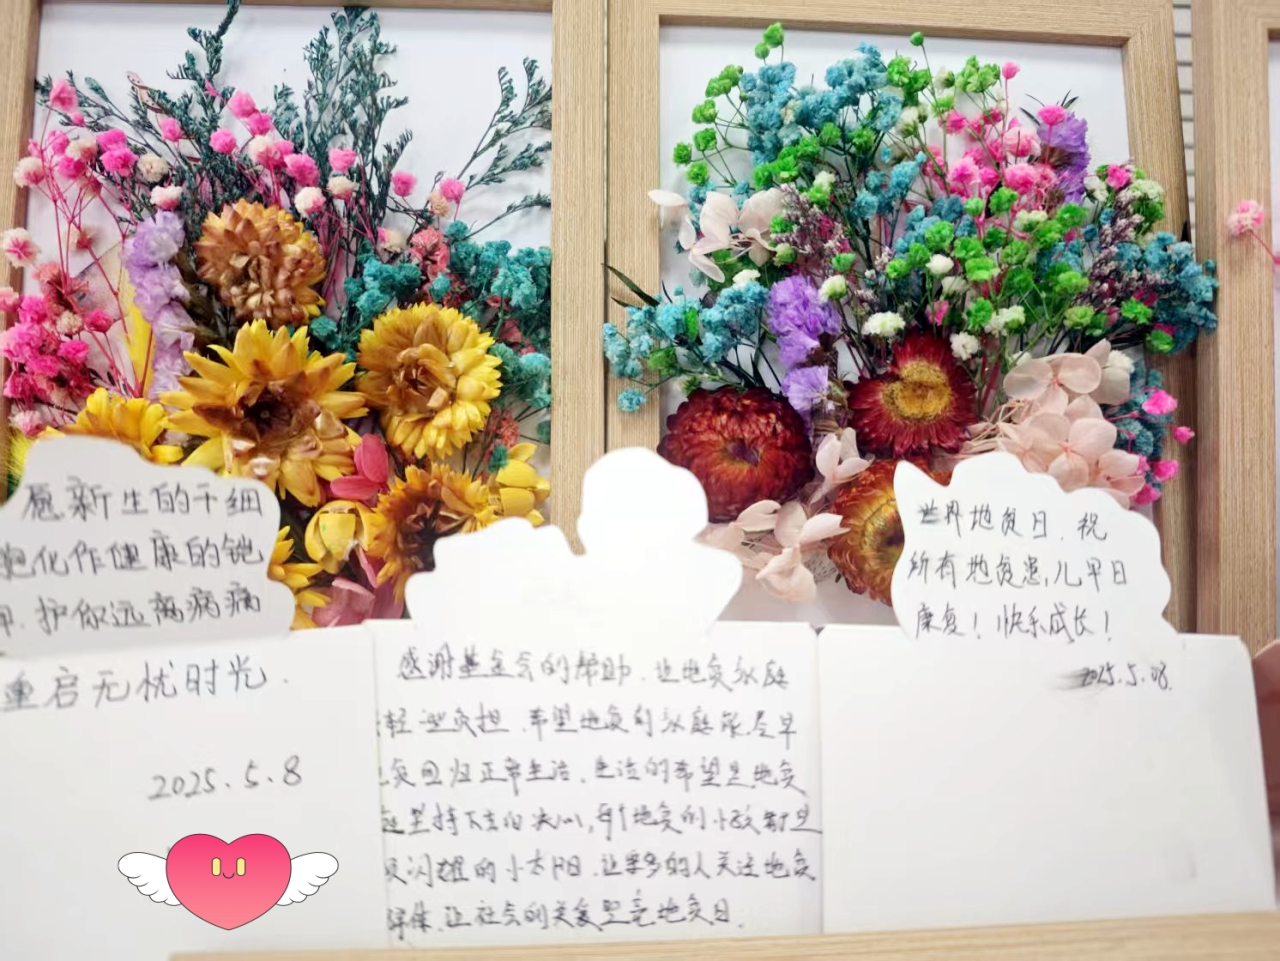 愿新生的干细
胞化作健康的铠
甲.护你远离病痛
重启无忧时光.
2025.5.8
感谢基金会的帮助.让地贫家庭
轻一些负担.希望地贫的家庭能尽早
回归正常生活.生活的希望是地贫
坚持下去的决心,每个地贫的小孩都是
闪耀的小太阳.让更多的人关注地贫
群体.让社会的关爱照亮地贫日.
世界地贫日.祝
所有地贫患儿早日
康复!快乐成长!
2025.5.08.